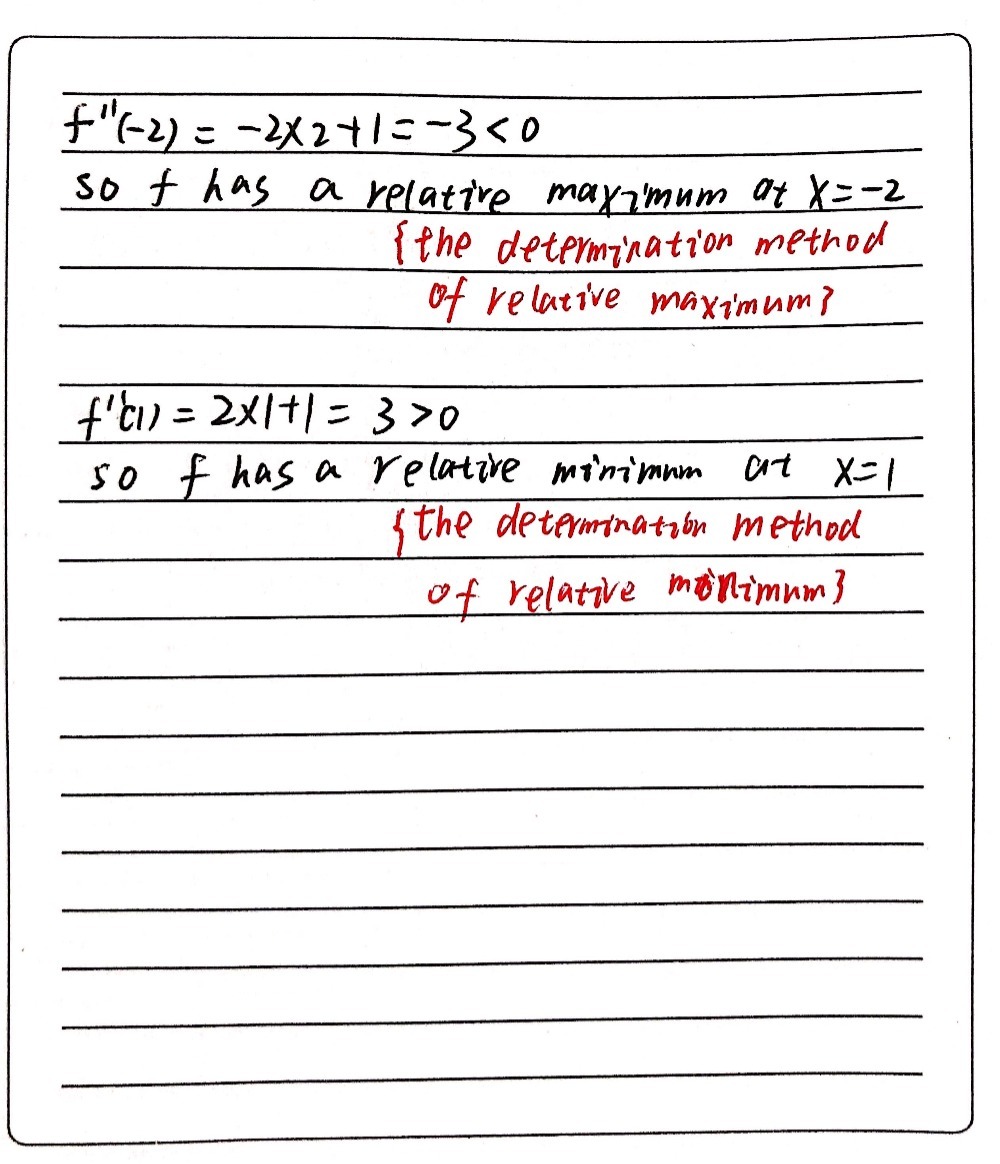 f''(-2) = -2×2+1 = -3 < 0
so f has a relative maximum at x=-2
{the determination method
of relative maximum}
f''(1) = 2×1+1 = 3 > 0
so f has a relative minimum at x=1
{the determination method
of relative minimum}